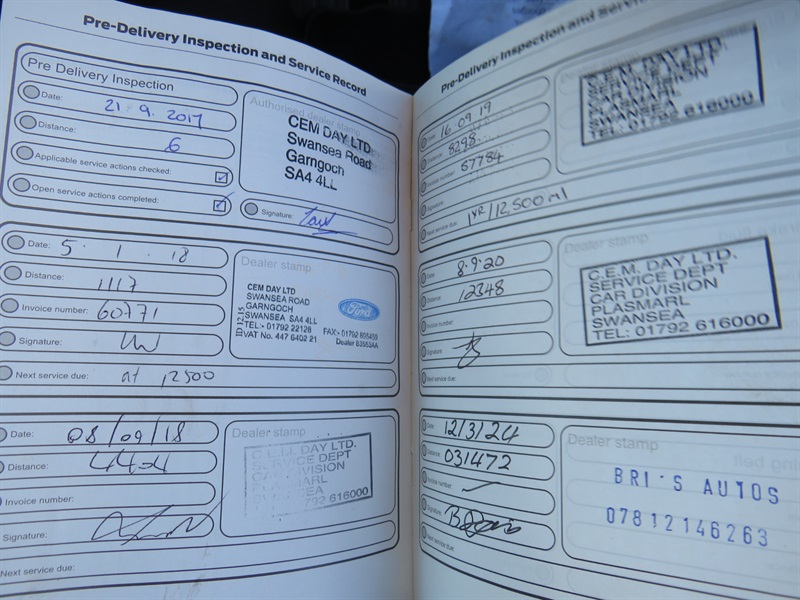 Pre-Delivery Inspection and Service Record
Pre Delivery Inspection
Date: 21 · 9 . 2017
Distance: 6
Applicable service actions checked:
Open service actions completed:
Authorised dealer stamp
CEM DAY LTD.
Swansea Road
Garngoch
SA4 4LL
Signature:
Date: 5 · 1 . 18
Distance: 1117
Invoice number: 60771
Signature:
Next service due: at 12500
Dealer stamp
CEM DAY LTD
SWANSEA ROAD
GARNGOCH
SWANSEA SA4 4LL
TEL:- 01792 22128 FAX:- 01792
VAT No. 447 6402 21 Dealer
Ford
Date: 08/09/18
Distance:
Invoice number:
Signature:
Next service due:
Dealer stamp
C.E.M. DAY LTD.
SERVICE DEPT
CAR DIVISION
PLASMARL
SWANSEA
TEL: 01792 616000
Pre-Delivery Inspection and Service
Date: 16 09 19
Distance: 8298
Invoice number: 67784
Signature:
Next service due: 1 YR/12,500 ml
Dealer stamp
C.E.M. DAY LTD.
SERVICE DEPT
CAR DIVISION
PLASMARL
SWANSEA
TEL: 01792 616000
Date: 8·9·20
Distance: 12348
Invoice number:
Signature:
Next service due:
Dealer stamp
C.E.M. DAY LTD.
SERVICE DEPT
CAR DIVISION
PLASMARL
SWANSEA
TEL: 01792 616000
Date: 12/3/24
Distance: 031472
Invoice number:
Signature:
Next service due:
Dealer stamp
BRI'S AUTOS
07812146263